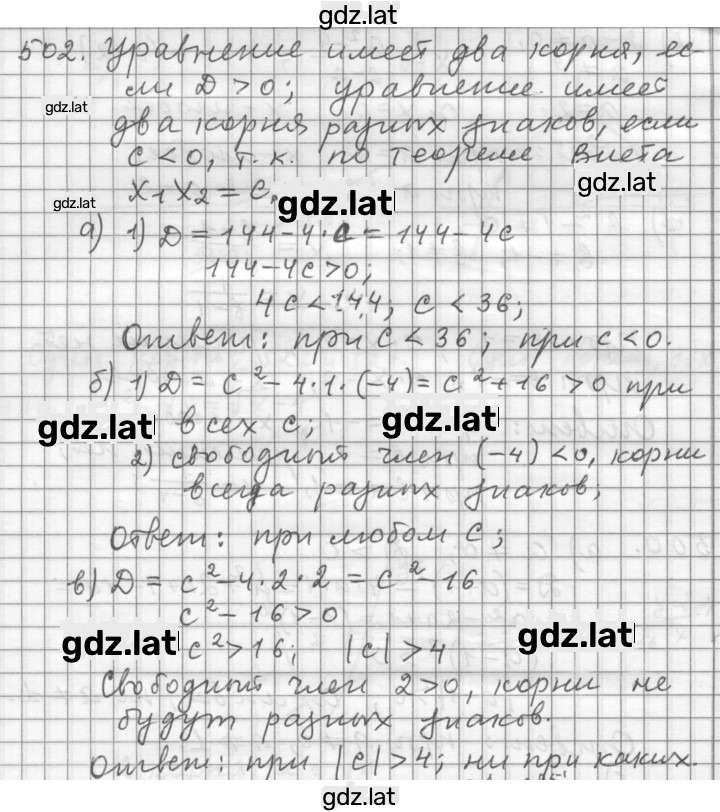 gdz.lat
502. Уравнение имеет два корня, ес-
ли D > 0; уравнение имеет
gdz.lat
два корня разных знаков, если
c < 0, т. к. по теореме Виета
gdz.lat
x₁x₂ = c.
gdz.lat
gdz.lat
а) 1) D = 144 - 4 · c = 144 - 4c
144 - 4c > 0;
4c < 144; c < 36;
Ответ: при c < 36; при c < 0.
б) 1) D = c² - 4·1·(-4) = c² + 16 > 0 при
всех c;
gdz.lat
gdz.lat
2) свободный член (-4) < 0, корни
всегда разных знаков;
Ответ: при любом c;
в) D = c² - 4·2·2 = c² - 16
c² - 16 > 0
gdz.lat
c² > 16; |c| > 4
gdz.lat
Свободный член 2 > 0, корни не
будут разных знаков.
Ответ: при |c| > 4; ни при каких.
gdz.lat